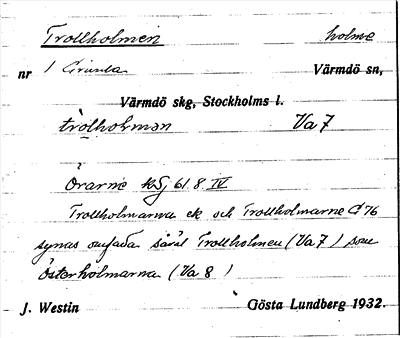 Trollholmen holme
nr 1 Grinda Värmdö sn,
Värmdö skg, Stockholms l.
trolholmən Va 7
Örarne kSj 61.8.IV
Trollholmarna ek och Trollholmarne G 76
synas omfatta såväl Trollholmen (Va 7) som
Österholmarna (Va 8)
J. Westin Gösta Lundberg 1932.